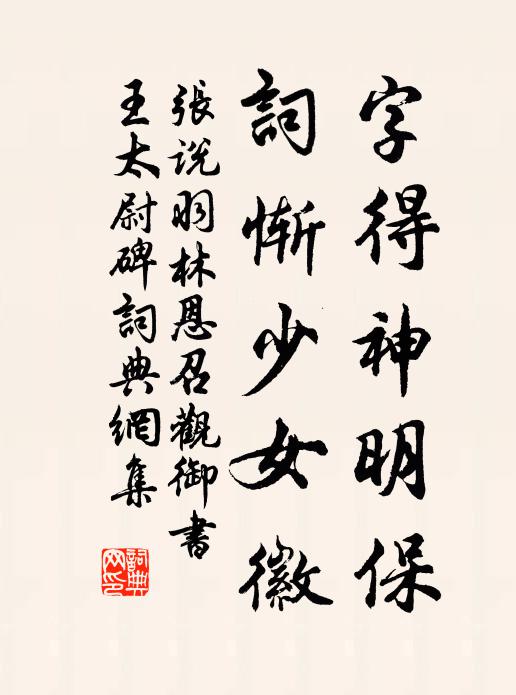 字得神明保
詞慚少女徽
張說羽林恩召觀御書
王太尉碑詞典網集
詞典
网印